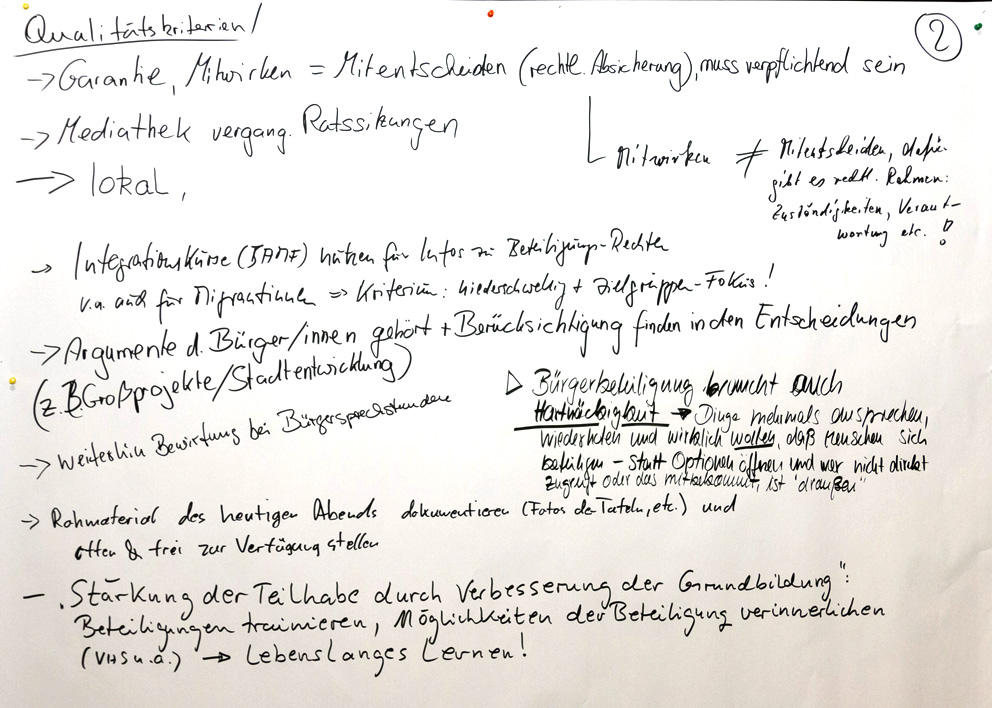 Qualitätskriterien/
2
-> Garantie, Mitwirken = Mitentscheiden (rechtl. Absicherung), muss verpflichtend sein
-> Mediathek vergang. Ratssitzungen
Mitwirken ≠ Mitentscheiden, dafür
gibt es rechtl. Rahmen:
Zuständigkeiten, Verant-
wortung etc. !
-> lokal,
-> Integrationskurse (BAMF) nutzen für Infos zu Beteiligungs-Rechten
v.a. auch für MigrantInnen => Kriterium: niederschwellig + Zielgruppen-Fokus!
-> Argumente d. Bürger/innen gehört + Berücksichtigung finden in den Entscheidungen
(z.B. Großprojekte/Stadtentwicklung)
-> Weiterhin Bewirtung bei Bürgersprechstunden
▷ Bürgerbeteiligung braucht auch
Hartnäckigkeit -> Dinge mehrmals ansprechen,
wiederholen und wirklich wollen, daß Menschen sich
beteiligen – statt Optionen öffnen und wer nicht direkt
zugreift oder das mitbekommt, ist "draußen"
-> Rohmaterial des heutigen Abends dokumentieren (Fotos der Tafeln, etc.) und
offen & frei zur Verfügung stellen
– „Stärkung der Teilhabe durch Verbesserung der Grundbildung":
Beteiligungen trainieren, Möglichkeiten der Beteiligung verinnerlichen
(VHS u.a.) -> Lebenslanges Lernen!